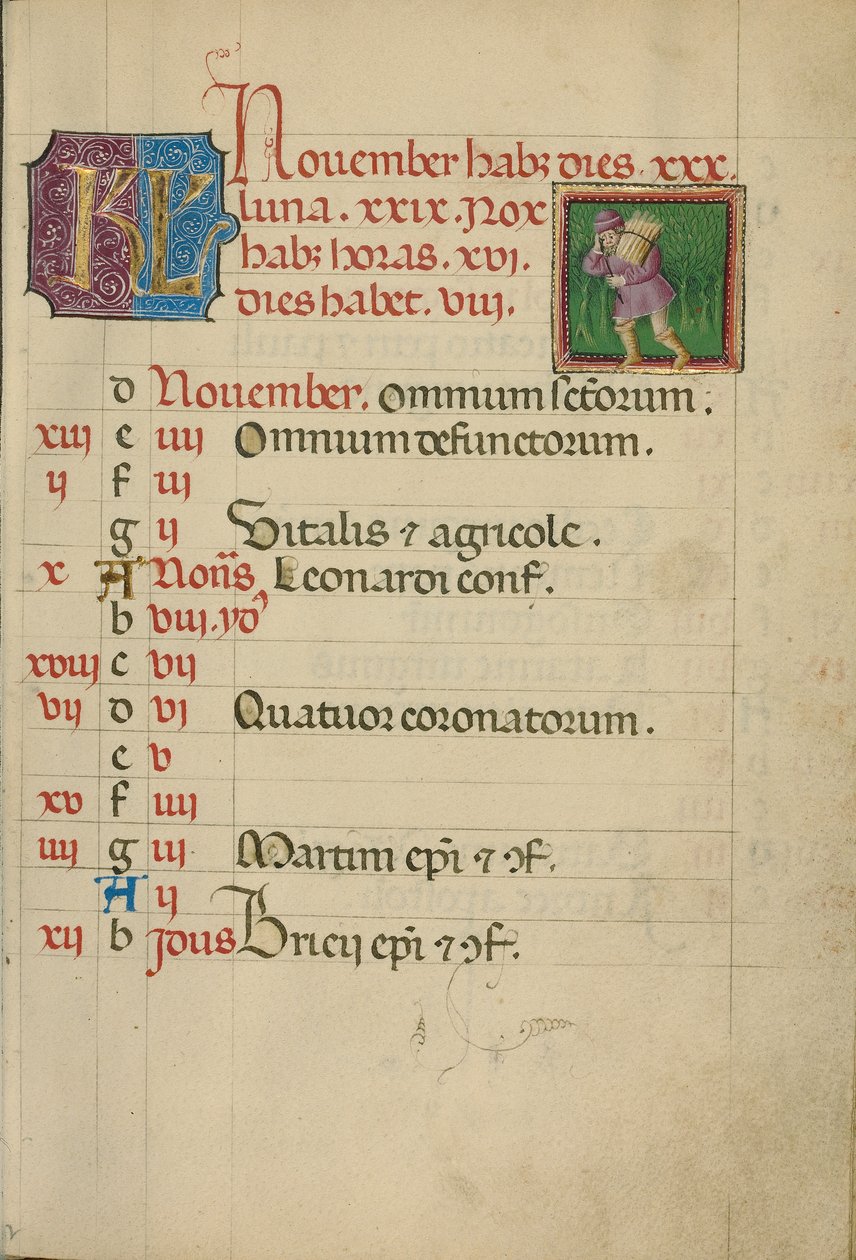 KL
November habꝫ dies. xxx.
luna. xxix. Nox
habꝫ horas. xvj.
dies habet. viij.
d November. Omnium sctōrum.
xiij e iiij Omnium defunctorum.
ij f iij
g ij Vitalis ⁊ agricole.
x A Noñs Leonardi conf.
b viij. yd⁹
xviij c vij
vij d vj Quatuor coronatorum.
e v
xv f iiij
iiij g iij Martini epi̅ ⁊ ↄf.
A ij
xij b Jdus Bricij epi̅ ⁊ ↄf.